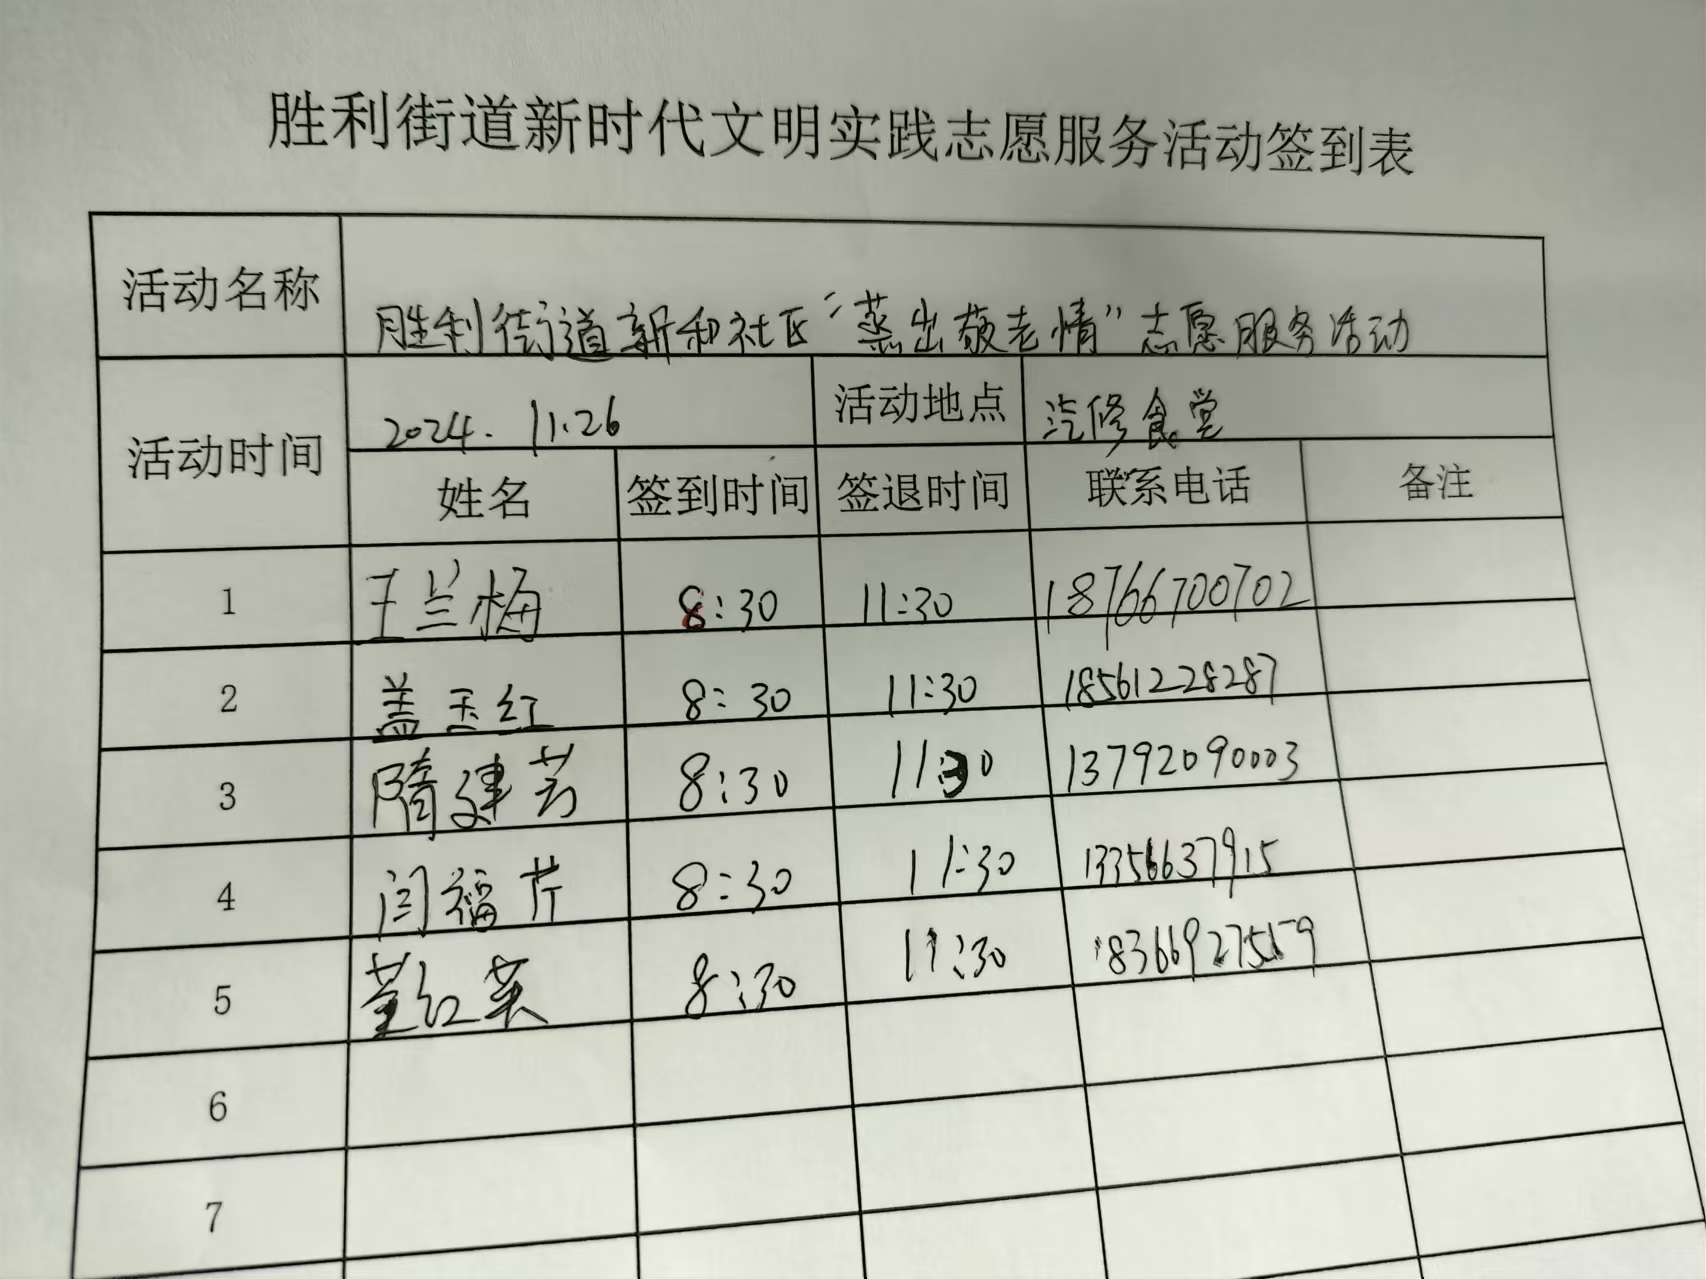 胜利街道新时代文明实践志愿服务活动签到表
活动名称 胜利街道新和社区“蒸出敬老情”志愿服务活动
活动时间 2024.11.26 活动地点 汽修食堂
姓名 签到时间 签退时间 联系电话 备注
1 王兰梅 8:30 11:30 18766700702
2 盖玉红 8:30 11:30 18561228287
3 隋建芳 8:30 11:30 13792090003
4 闫福芹 8:30 11:30 13356637915
5 董红英 8:30 11:30
6
7